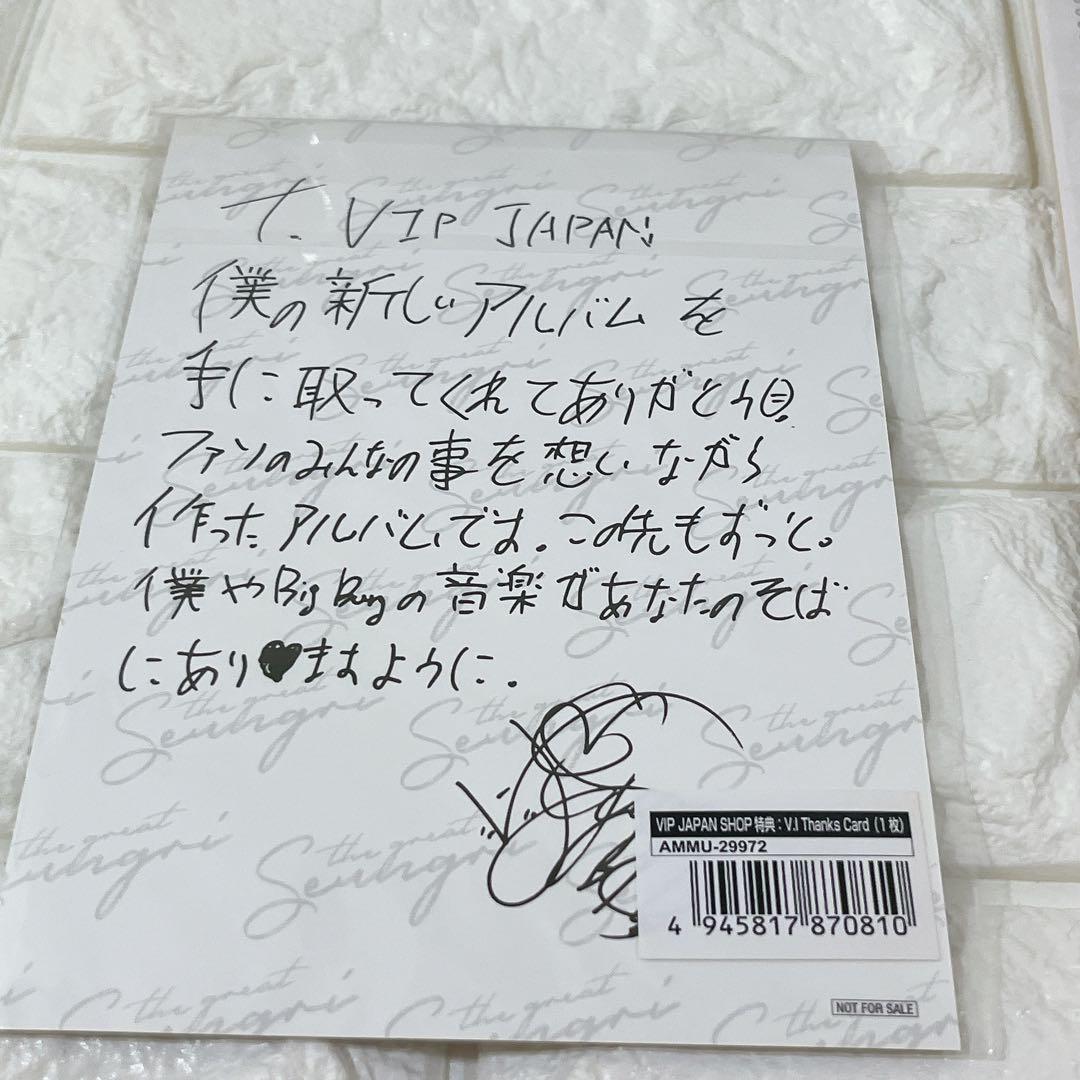 T. VIP JAPAN
僕の新しいアルバムを
手に取ってくれてありがとう!!
ファンのみんなの事を想いながら
作ったアルバムです。この先もずっと。
僕やBigBangの音楽があなたのそば
にあり♥ますように。
the great Seungri
VIP JAPAN SHOP特典:V.I Thanks Card (1枚)
AMMU-29972
4 945817 870810
NOT FOR SALE